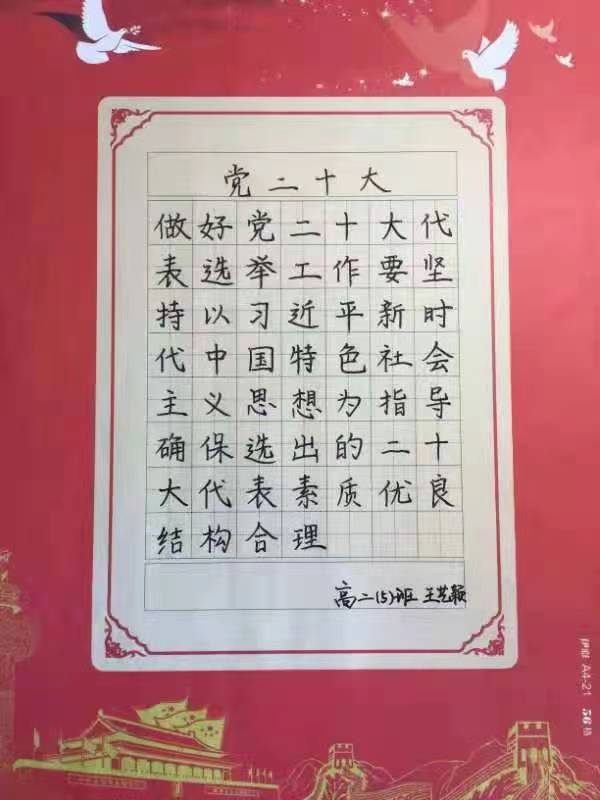 党二十大
做好党二十大代
表选举工作要坚
持以习近平新时
代中国特色社会
主义思想为指导
确保选出的二十
大代表素质优良
结构合理
高二(5)班 王艺颖
A4-21 56格